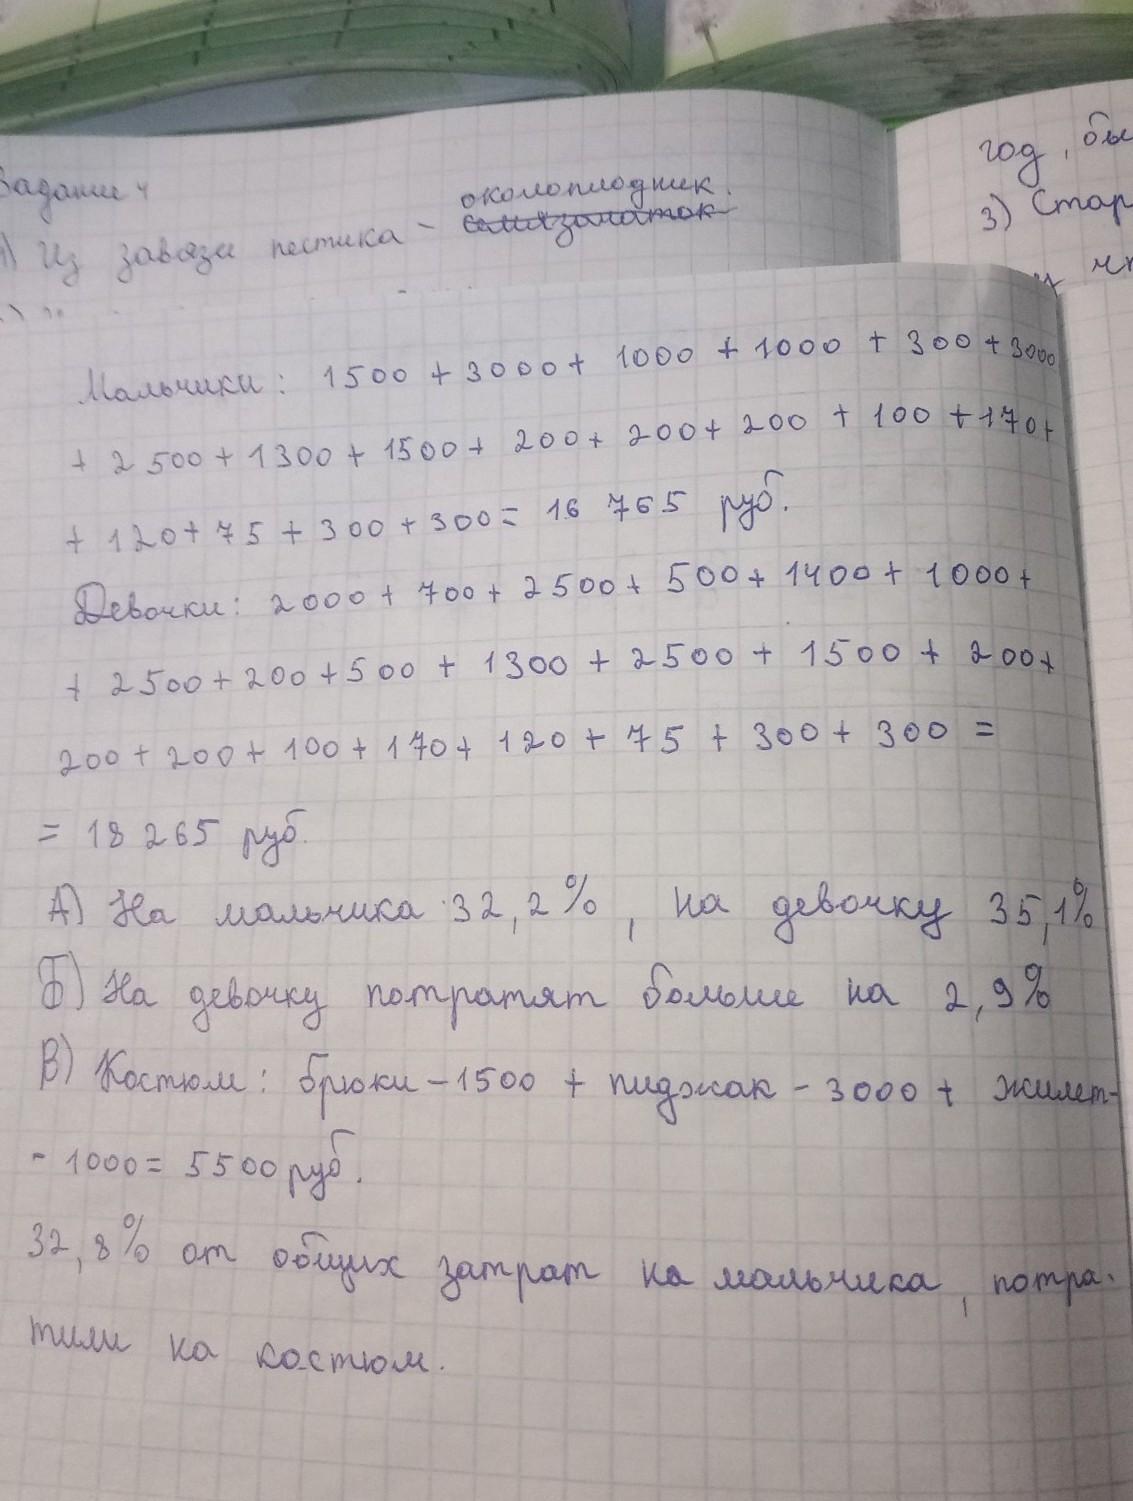 Задание 4
1) Из завязи пестика - околоплодник.
год, бы
3) Стар
Мальчики: 1500 + 3000 + 1000 + 1000 + 300 + 3000
+ 2500 + 1300 + 1500 + 200 + 200 + 200 + 100 + 170 +
+ 120 + 75 + 300 + 300 = 16 765 руб.
Девочки: 2000 + 700 + 2500 + 500 + 1400 + 1000 +
+ 2500 + 200 + 500 + 1300 + 2500 + 1500 + 200 +
200 + 200 + 100 + 170 + 120 + 75 + 300 + 300 =
= 18 265 руб.
А) На мальчика 32,2%, на девочку 35,1%
Б) На девочку потратят больше на 2,9%
В) Костюм: брюки - 1500 + пиджак - 3000 + жилет-
- 1000 = 5500 руб.
32,8% от общих затрат на мальчика, потра-
тили на костюм.